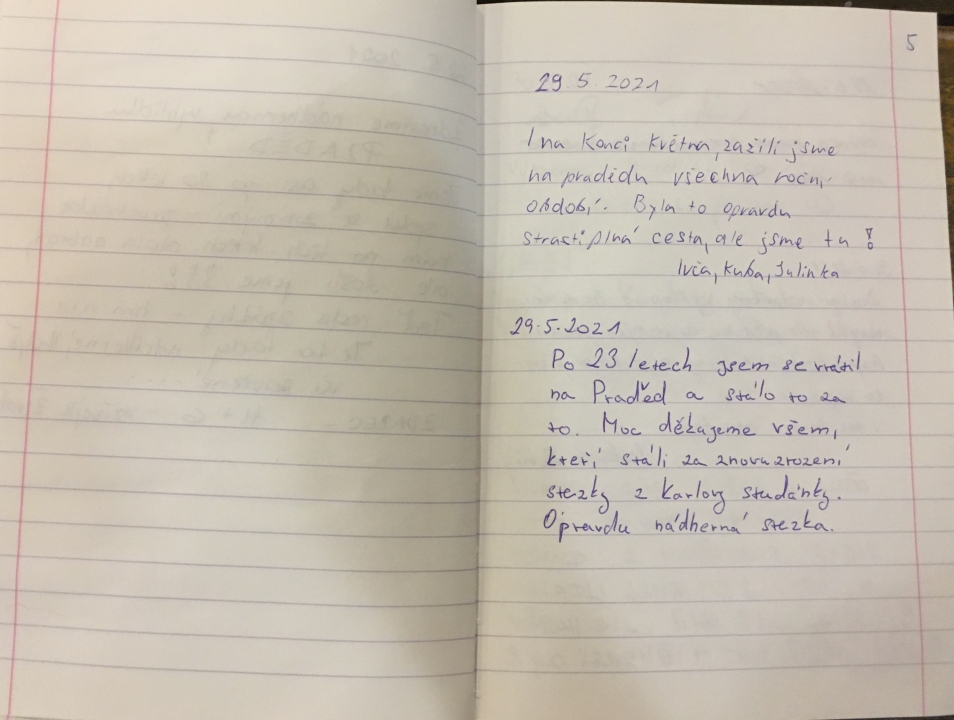 5
29.5.2021
I na konci května, zažili jsme
na pradědu všechna roční
období. Byla to opravdu
strastiplná cesta, ale jsme tu!
Ivča, Kuba, Julinka
29.5.2021
Po 23 letech jsem se vrátil
na Praděd a stálo to za
to. Moc děkujeme všem,
kteří stáli za znovuzrození
stezky z Karlovy studánky.
Opravdu nádherná stezka.